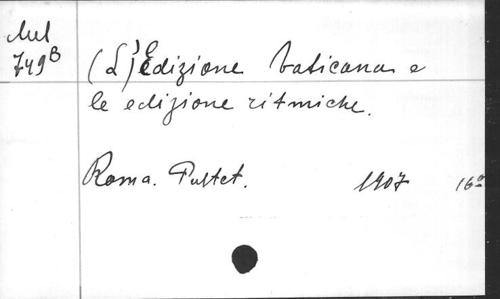 Mel
749B
(L')Edizione Vaticana e
le edizione ritmiche.
Roma. Pustet. 1907 16º